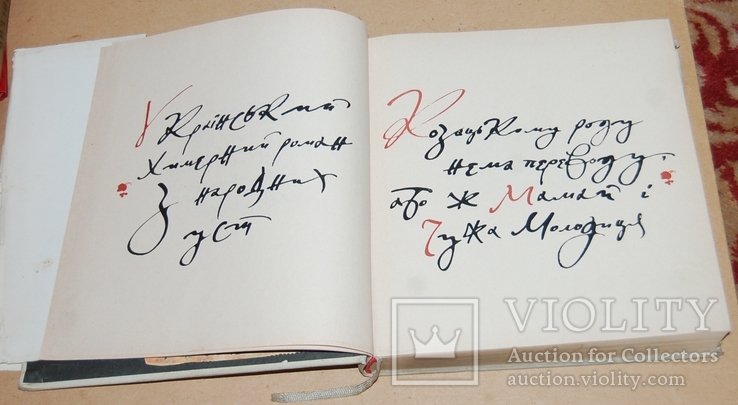 Український
Химерний роман
З народних
уст
Козацькому роду
нема переводу,
або ж Мамай і
Чужа Молодиця
VIOLITY
Auction for Collectors
auction.violity.com